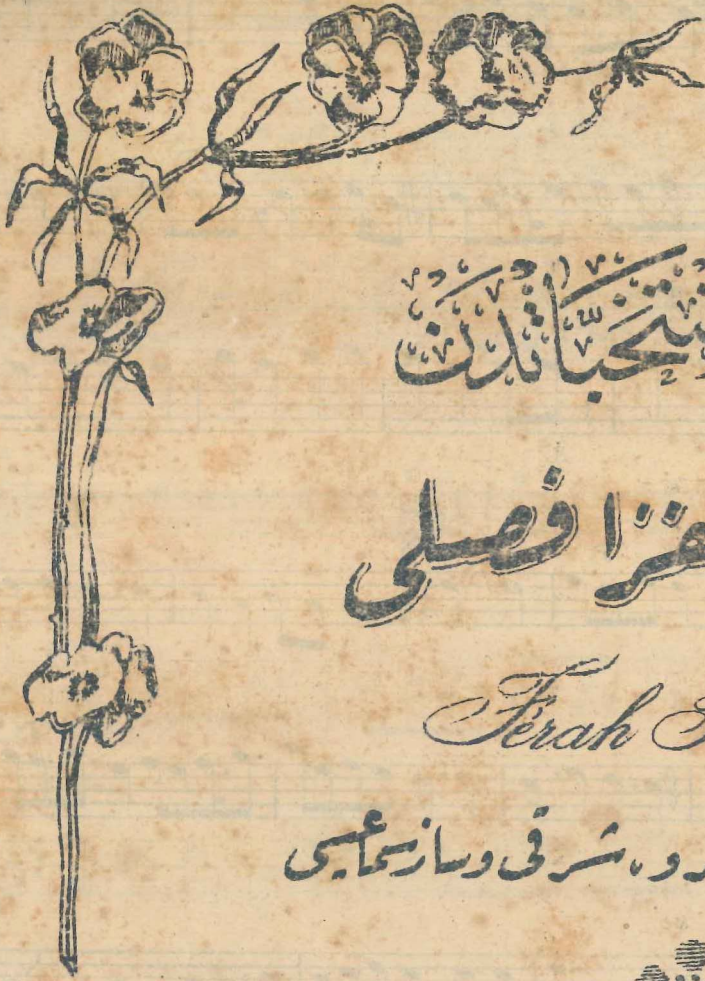 منتخباتدن
فزا فصلی
Férah
و، شرقی وسازسماعیسی